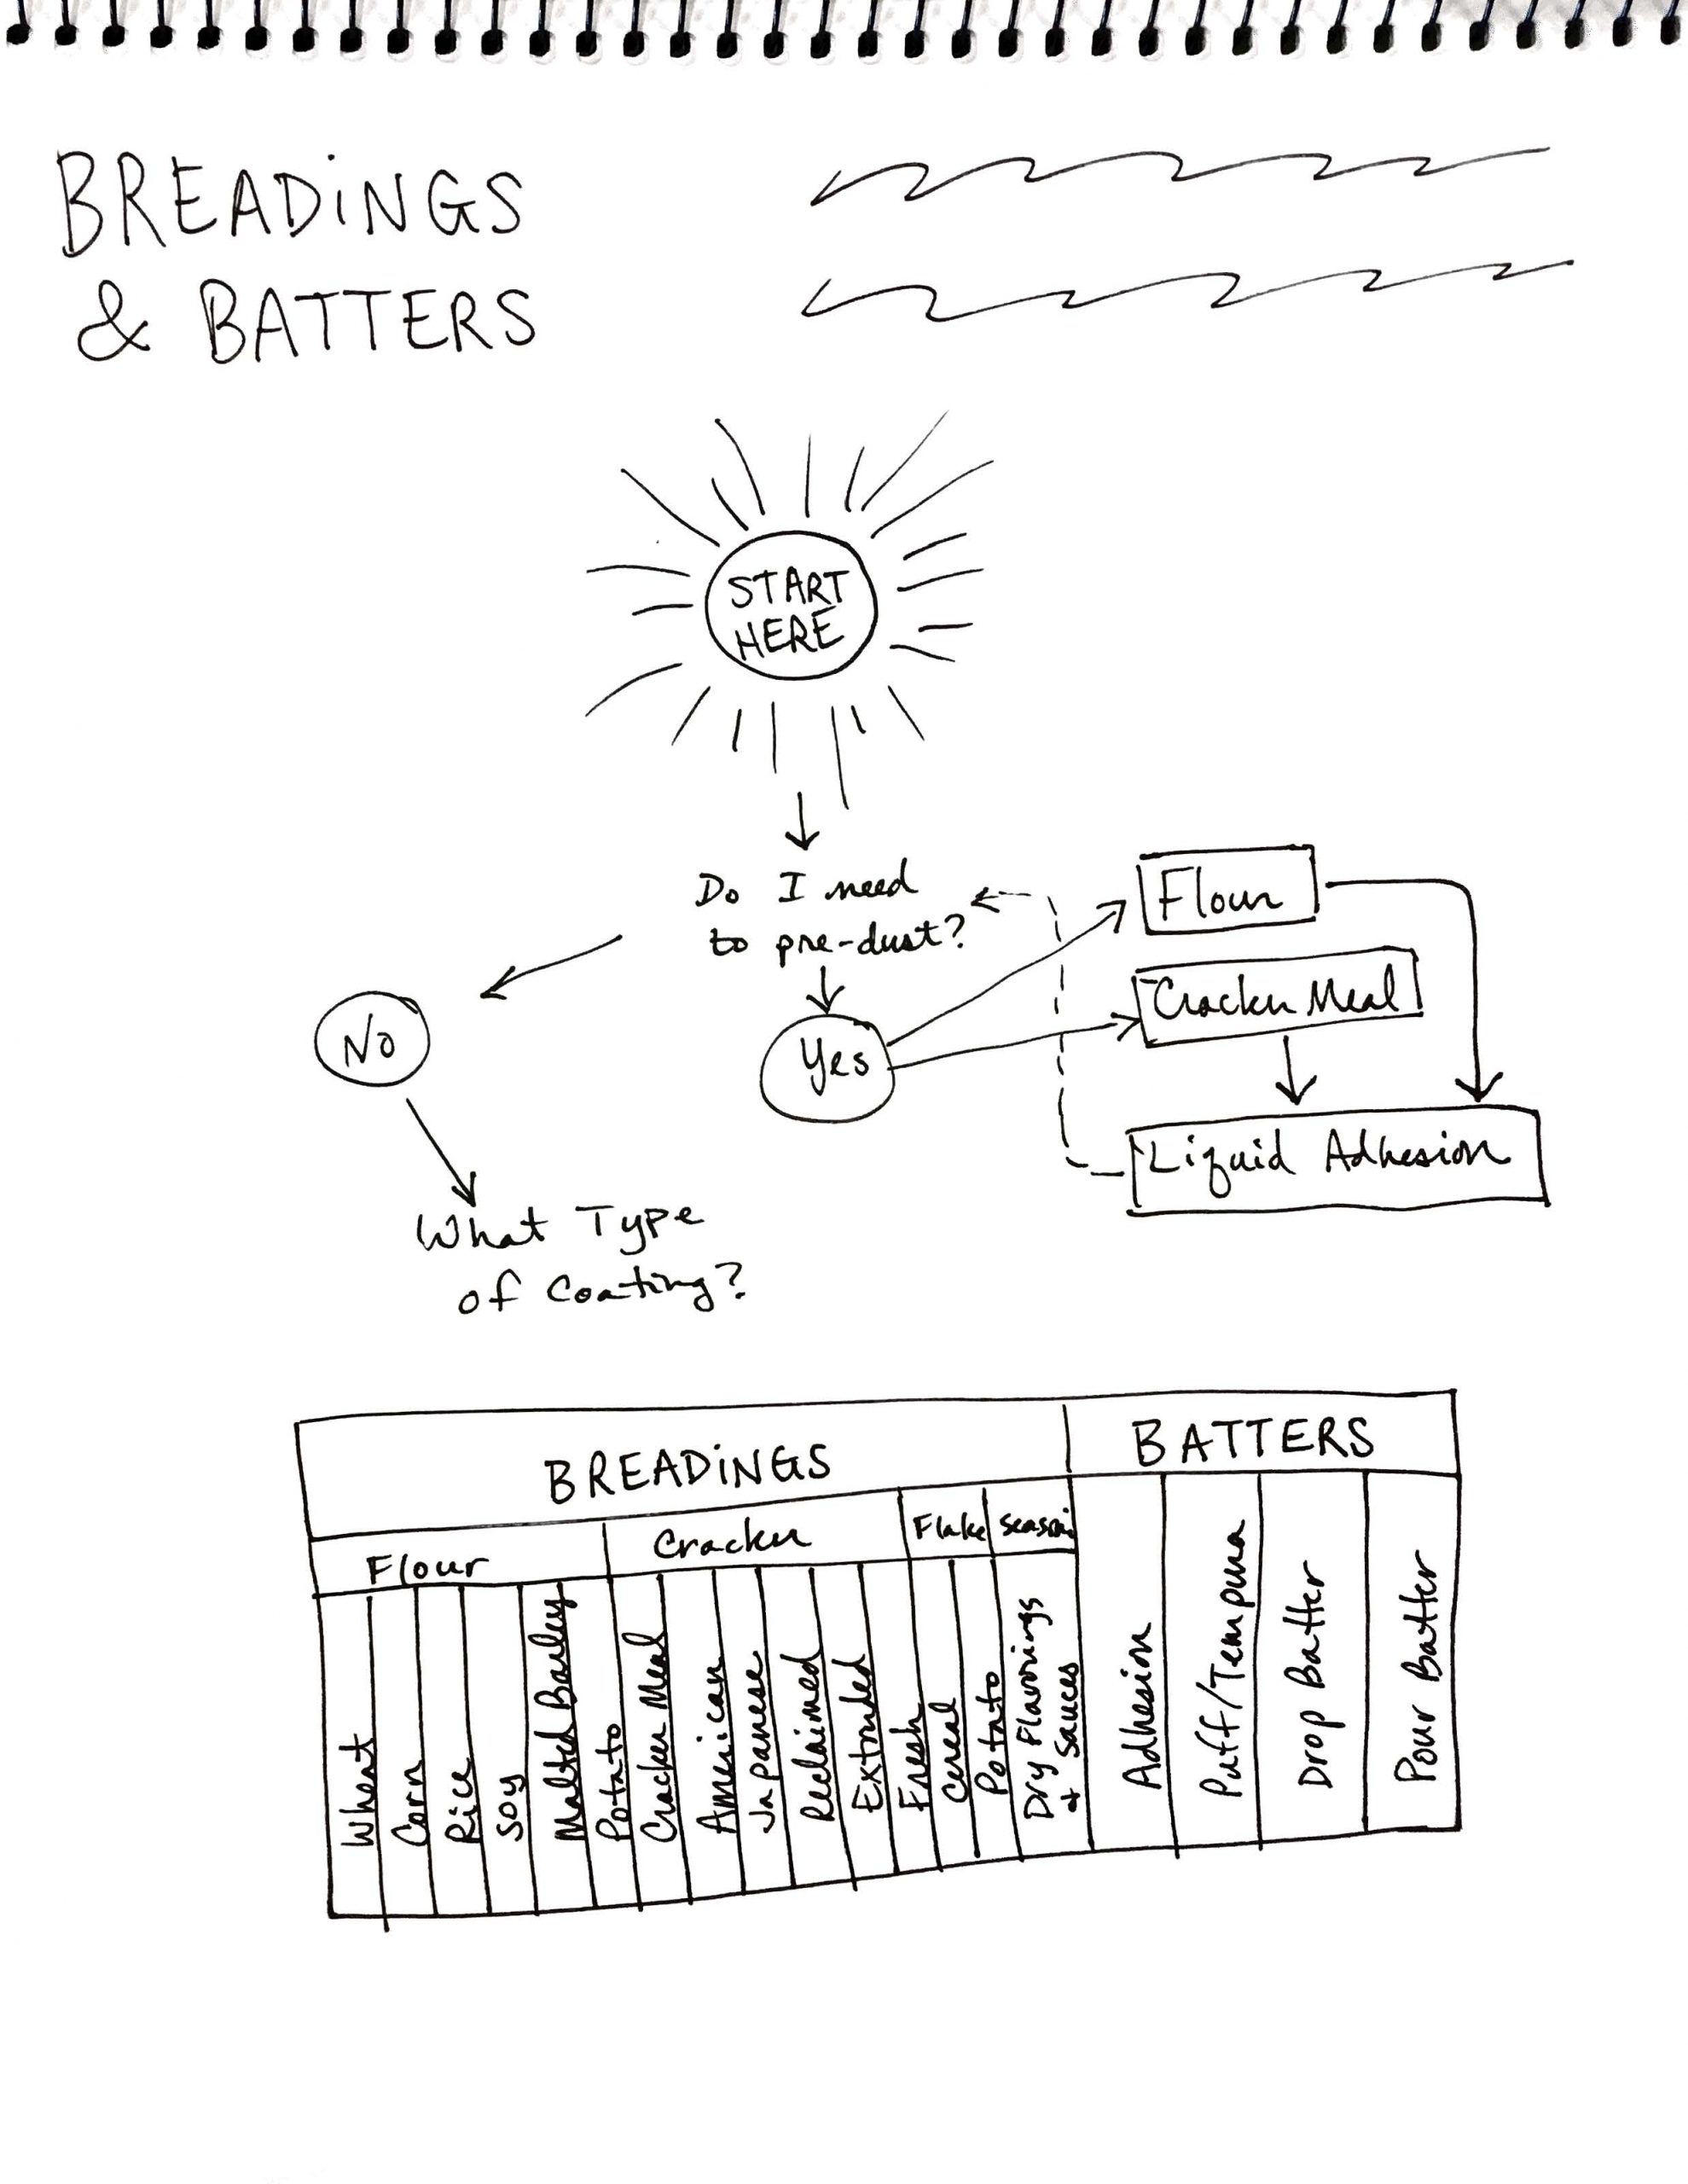 BREADiNGS
& BATTERS
START
HERE
Do I need
to pre-dust?
Flour
Cracker Meal
No
Yes
Liquid Adhesion
What Type
of Coating?
BREADiNGS
BATTERS
Flour
Cracker
Flake
Season
Wheat
Corn
Rice
Soy
Malted Barley
Potato
Cracker Meal
American
Japanese
Reclaimed
Extruded
Fresh
Cereal
Potato
Dry Flavorings
+ Sauces
Adhesion
Puff/Tempura
Drop Batter
Pour Batter